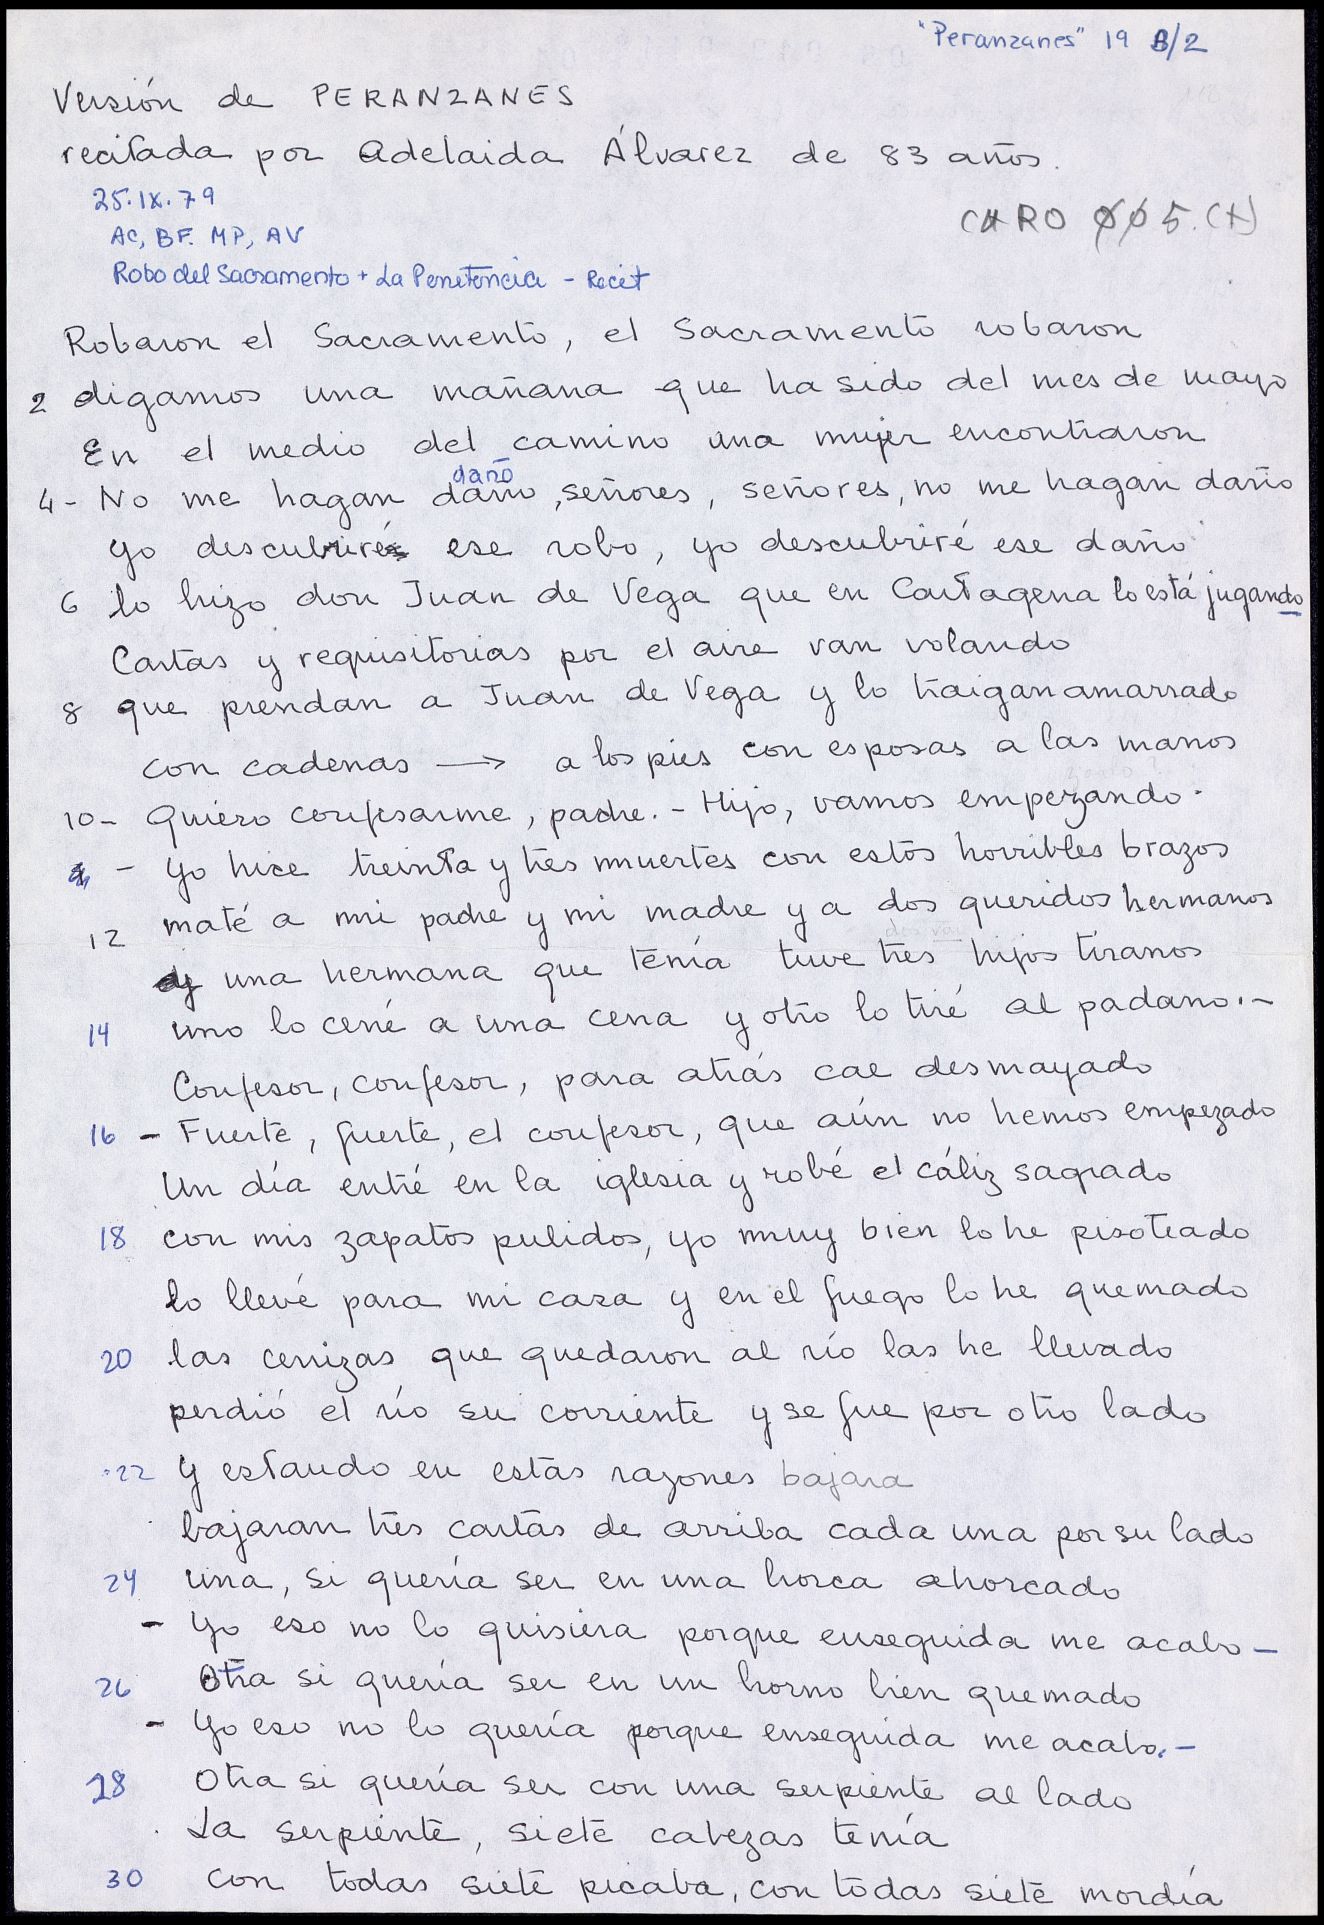 "Peranzanes" 19 B/2
Versión de PERANZANES
recitada por Adelaida Álvarez de 83 años.
25.IX.79
CARO 005.(A)
AC, BF. MP, AV
Robo del Sacramento + La Penitencia - Recit
Robaron el Sacramento, el Sacramento robaron
2 digamos una mañana que ha sido del mes de mayo
En el medio del camino una mujer encontraron
daño
4 - No me hagan daño, señores, señores, no me hagan daño
yo descubriré ese robo, yo descubriré ese daño
6 lo hizo don Juan de Vega que en Cartagena lo está jugando
Cartas y requisitorias por el aire van volando
8 que prendan a Juan de Vega y lo traigan amarrado
con cadenas → a los pies con esposas a las manos
10 - Quiero confesarme, padre. - Hijo, vamos empezando.
- Yo hice treinta y tres muertes con estos horribles brazos
12 maté a mi padre y mi madre y a dos queridos hermanos
y una hermana que tenía tuve tres hijos tiranos
14 uno lo cené a una cena y otro lo tiré al padano. -
Confesor, confesor, para atrás cae desmayado
16 - Fuerte, fuerte, el confesor, que aún no hemos empezado
Un día entré en la iglesia y robé el cáliz sagrado
18 con mis zapatos pulidos, yo muy bien lo he pisoteado
lo llevé para mi casa y en el fuego lo he quemado
20 las cenizas que quedaron al río las he llevado
perdió el río su corriente y se fue por otro lado
22 Y estando en estas razones bajara
bajaran tres cartas de arriba cada una por su lado
24 una, si quería ser en una horca ahorcado
- Yo eso no lo quisiera porque enseguida me acabo -
26 Otra si quería ser en un horno bien quemado
- Yo eso no lo quería porque enseguida me acabo. -
28 Otra si quería ser con una serpiente al lado
La serpiente, siete cabezas tenía
30 con todas siete picaba, con todas siete mordía